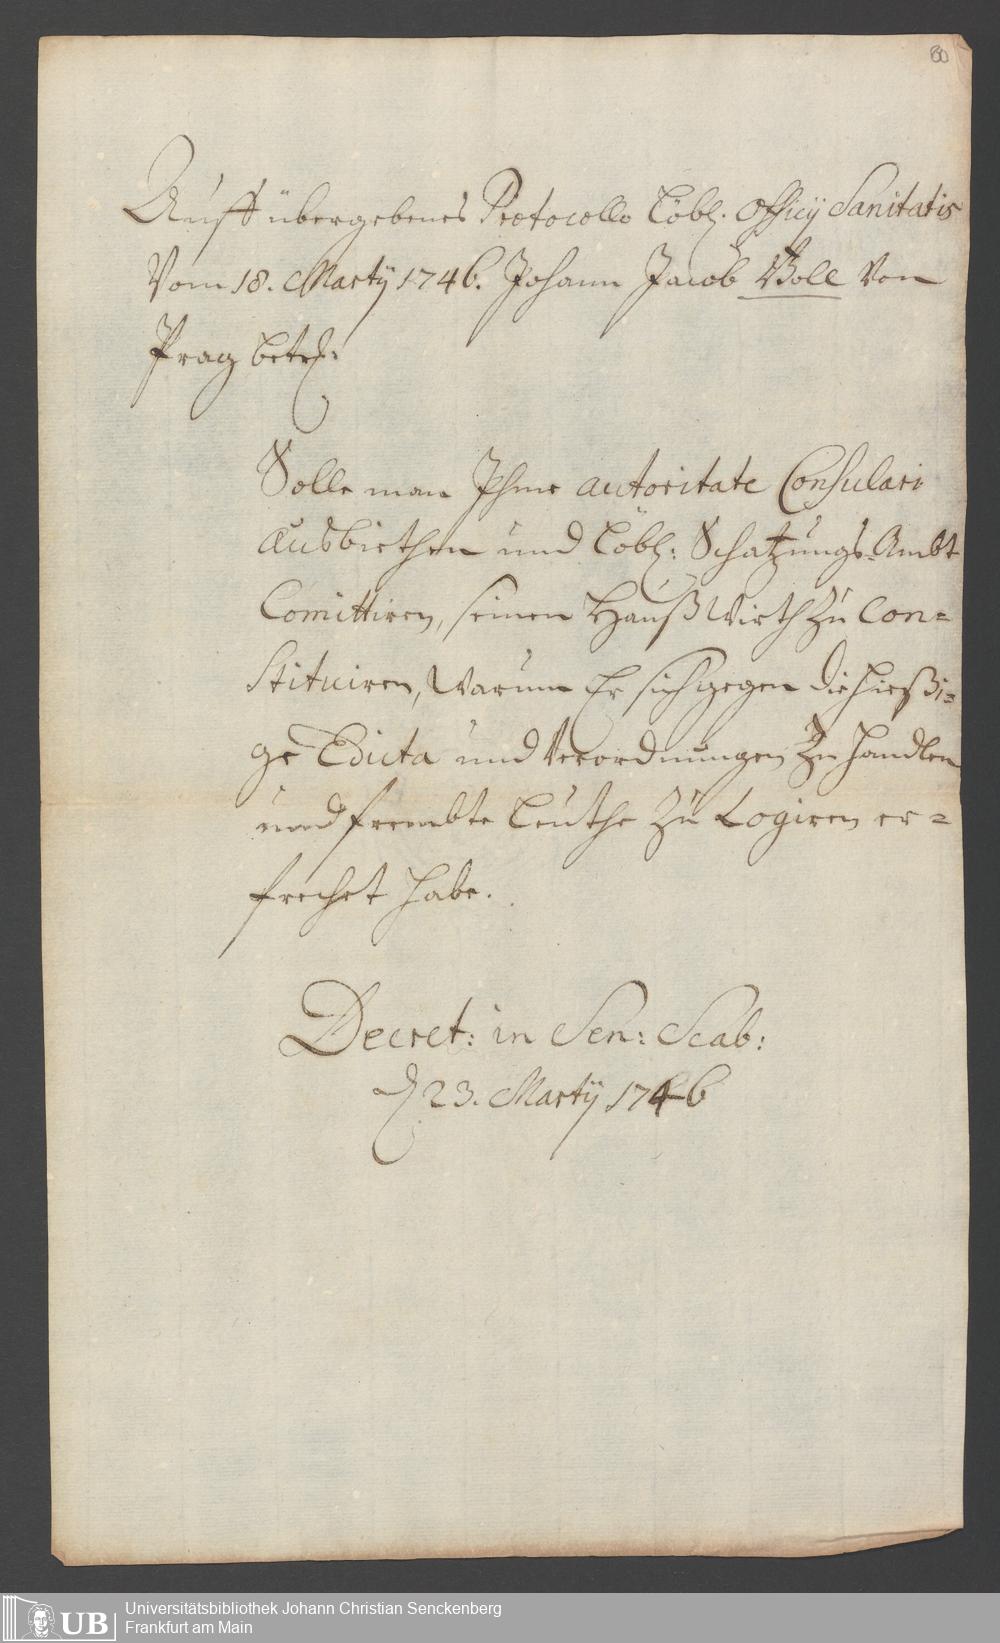 80
Auff übergebenes Protocollo Löbl. Officÿ Sanitatis
Vom 18. Martÿ 1746. Johann Jacob Boll Von
Prag betr:
Solle man Ihme autoritate Consulari
ausbiethen und Löbl: Schatzungs-Ambt
Comittiren, seinen Hauß Wirth zu Con=
stituiren, Warum Er sich gegen die hießi=
ge Edicta und Verordnungen zu handlen
und frembte Leuthe zu Logiren er=
frechet habe.
Decret: in Sen: Scab:
d 23. Martÿ 1746
UB Universitätsbibliothek Johann Christian Senckenberg
Frankfurt am Main